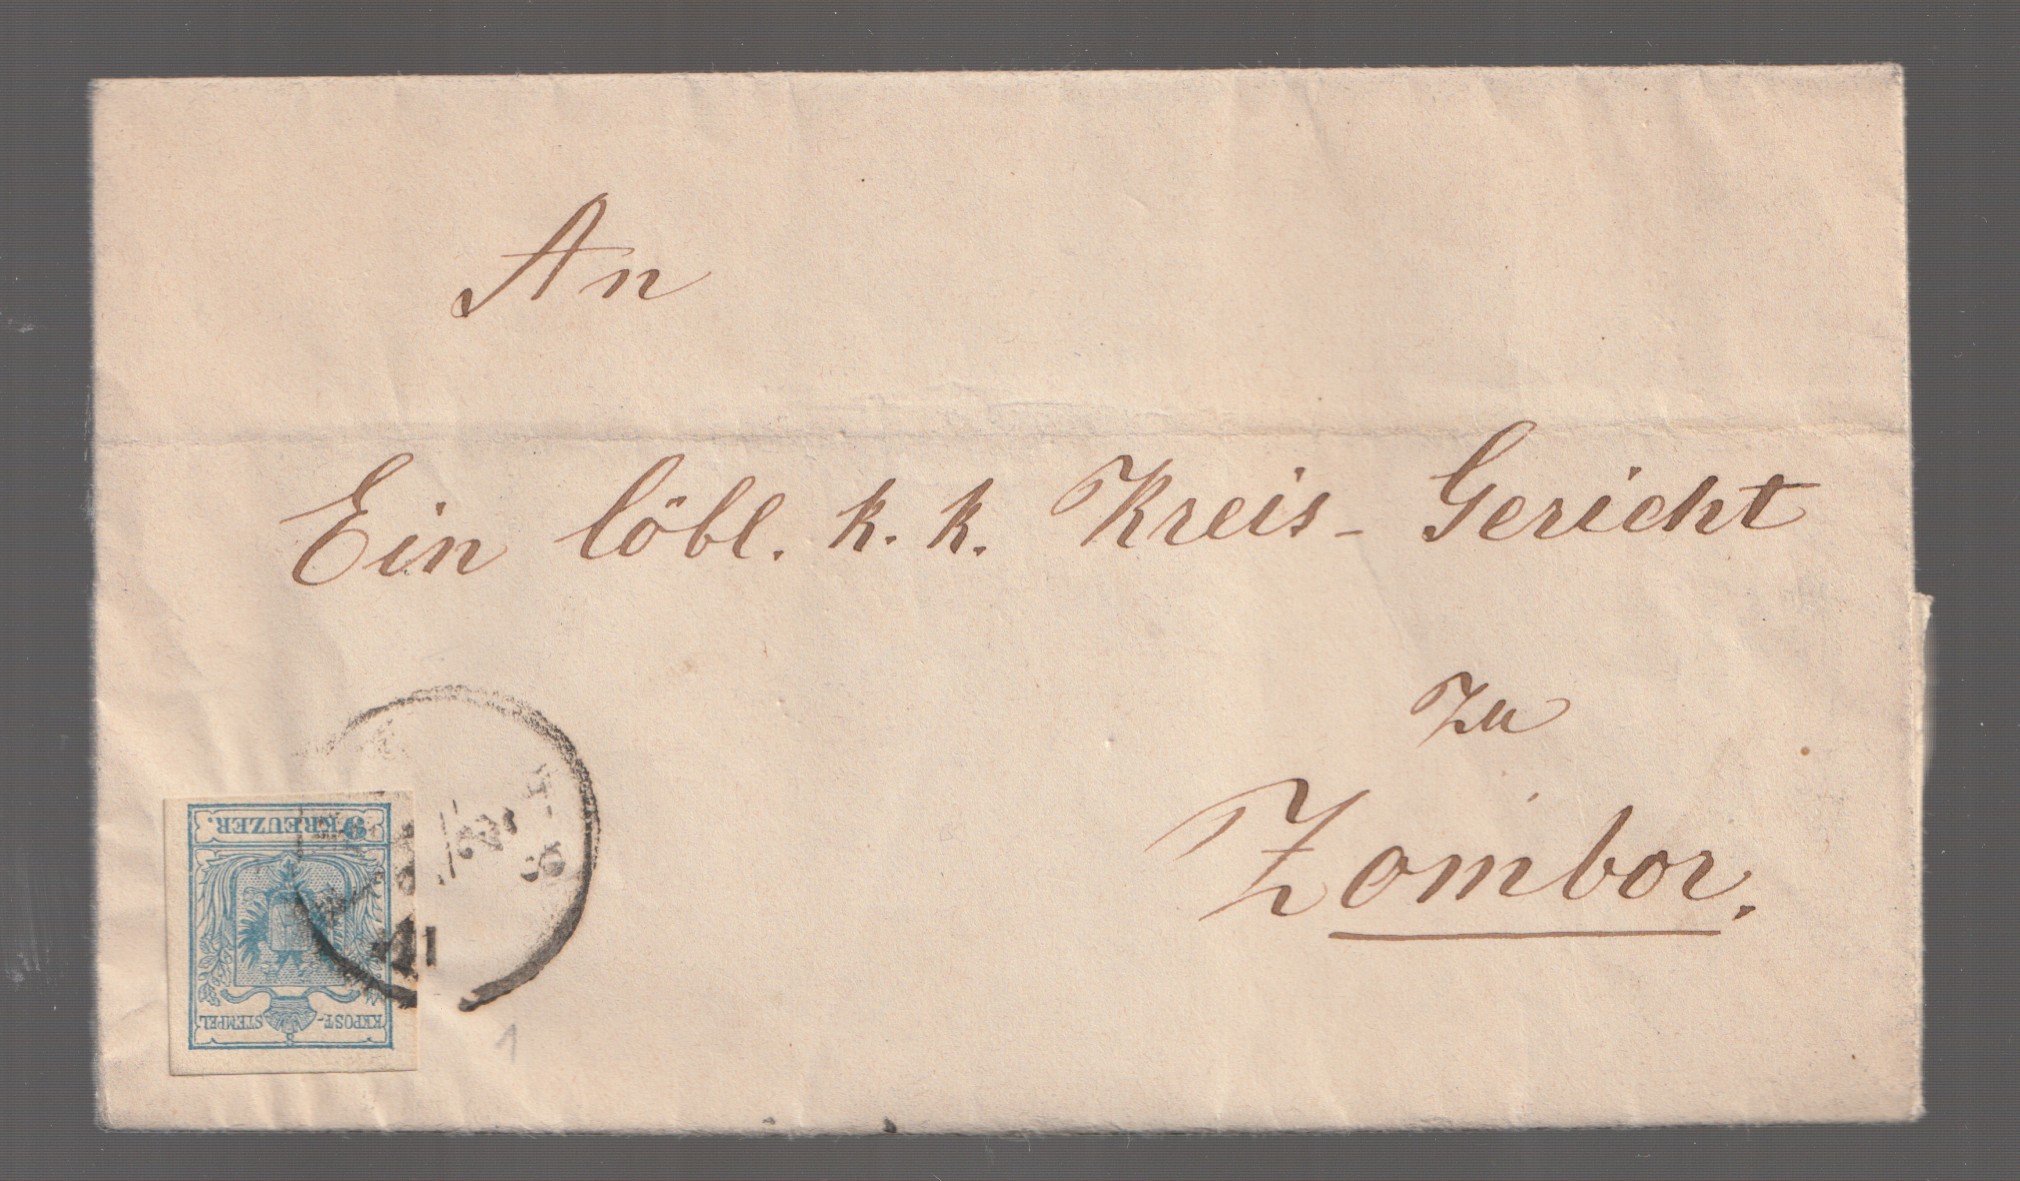 An
Ein löbl. k. k. Kreis-Gericht
zu
Zombor.
9 KREUZER.
KKPOST-STEMPEL
1